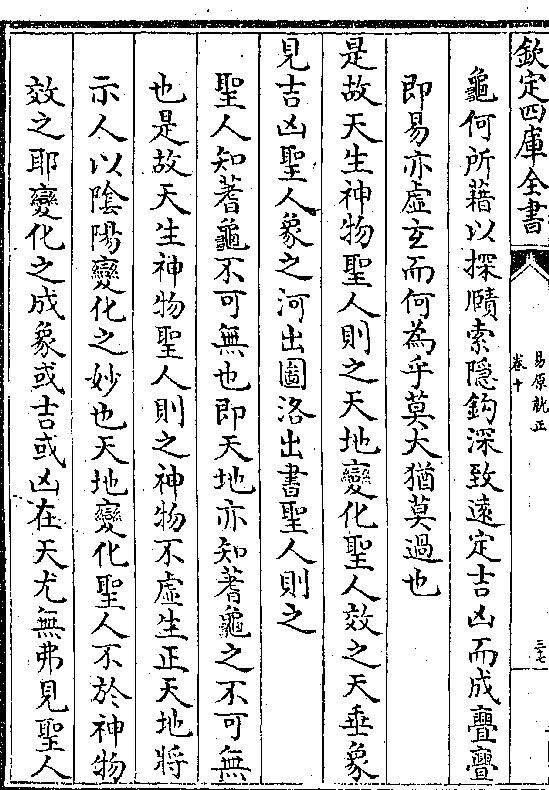 欽定四庫全書
易原就正
卷十
三七
龜何所藉以探賾索隱鈎深致遠定吉凶而成亹亹
即易亦虛玄而何為乎莫大猶莫過也
是故天生神物聖人則之天地變化聖人效之天垂象
見吉凶聖人象之河出圖洛出書聖人則之
聖人知蓍龜不可無也即天地亦知蓍龜之不可無
也是故天生神物聖人則之神物不虛生正天地將
示人以陰陽變化之妙也天地變化聖人不於神物
效之耶變化之成象或吉或凶在天尤無弗見聖人